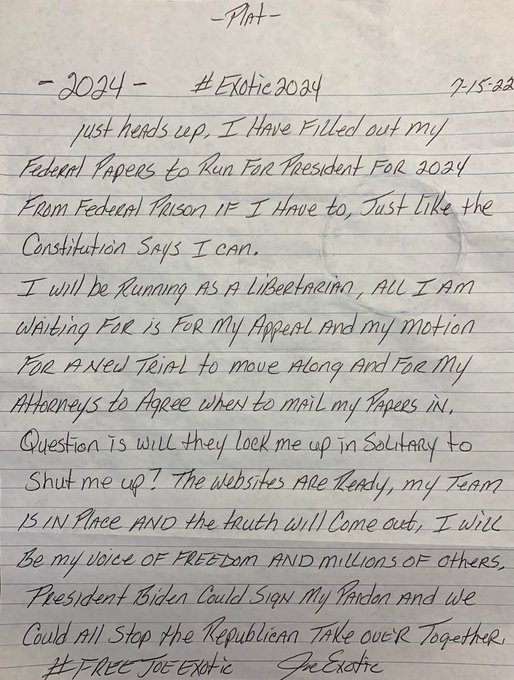 -Plat-
-2024- #Exotic2024 7-15-22
just heads up, I Have Filled out my
Federal Papers to Run For President For 2024
From Federal Prison IF I Have to, Just like the
Constitution Says I can.
I will be Running As a Libertarian, All I Am
waiting For is For My Appeal And my motion
For A New Trial to move Along And For My
Attorneys to Agree when to mail my Papers in.
Question is will they lock me up in Solitary to
Shut me up? The websites Are Ready, my Team
is in Place And the truth will Come out, I will
Be my voice of FREEDOM AND millions of others,
President Biden Could Sign My Pardon And we
Could All Stop the Republican Take over Together.
#FREEJOEEXOTIC Joe Exotic